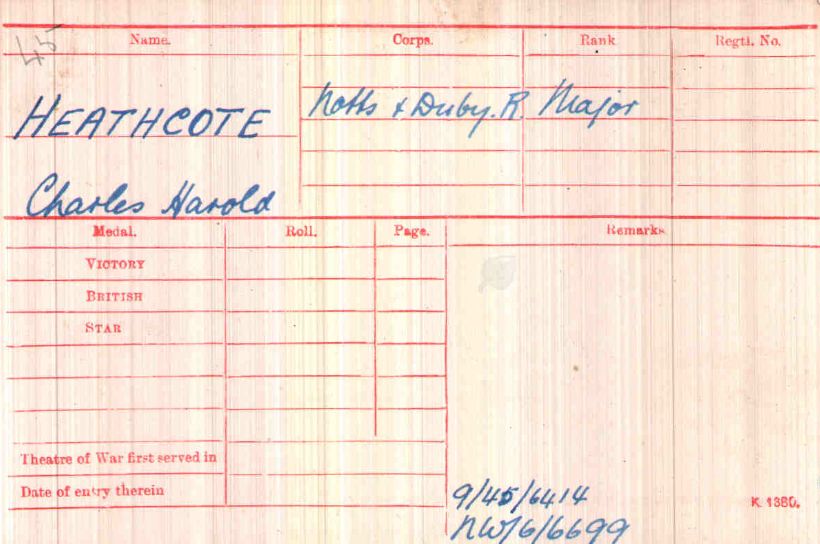 45
Name. Corps. Rank Regtl. No.
HEATHCOTE Notts & Derby. R. Major
Charles Harold
Medal. Roll. Page. Remarks.
VICTORY
BRITISH
STAR
Theatre of War first served in
Date of entry therein
9/45/6414
K. 1380.
NW/6/6699